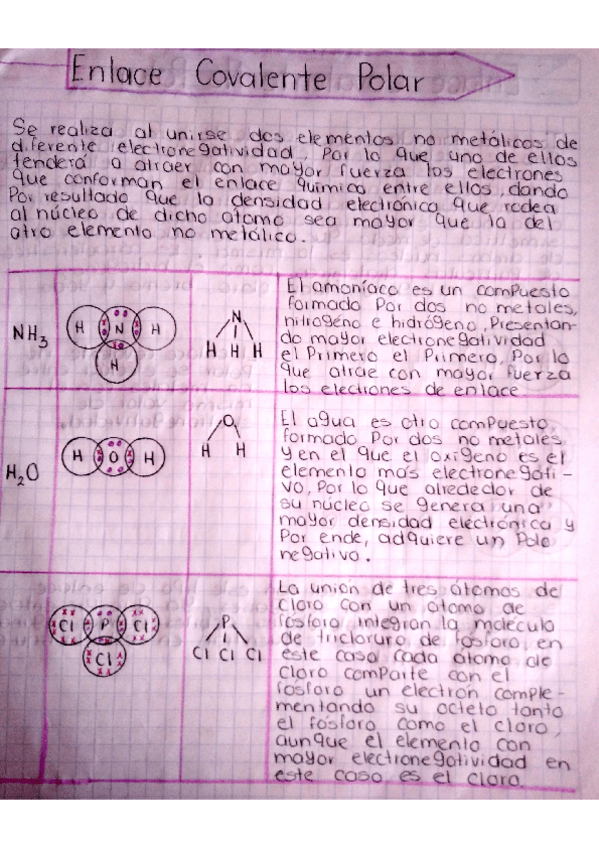 Enlace Covalente Polar
Se realiza al unirse dos elementos no metálicos de
diferente electronegatividad, Por lo que uno de ellos
tenderá a atraer con mayor fuerza los electrones
que conforman el enlace químico entre ellos, dando
Por resultado que la densidad electrónica que rodea
al núcleo de dicho atomo sea mayor que la del
otro elemento no metálico.
NH3
H N H
H
N
H H H
El amoníaco es un compuesto
formado Por dos no metales,
nitrogéno e hidrógeno, Presentan-
do mayor electronegatividad
el Primero el Primero, Por lo
que atrae con mayor fuerza
los electrones de enlace
H2O
H O H
O
H H
El agua es otro compuesto,
formado Por dos no metales
y en el que el oxígeno es el
elemento más electronegati-
vo, Por lo que alrededor de
su núcleo se genera una
mayor densidad electrónica y
Por ende, adquiere un Polo
negativo.
Cl P Cl
Cl
P
Cl Cl Cl
La unión de tres átomos de
cloro con un atomo de
fosforo integran la molécula
de tricloruro de fósforo, en
este caso cada átomo de
cloro comparte con el
fósforo un electrón comple-
mentando su octeto tanto
el fósforo como el cloro,
aunque el elemento con
mayor electronegatividad en
este caso es el cloro.